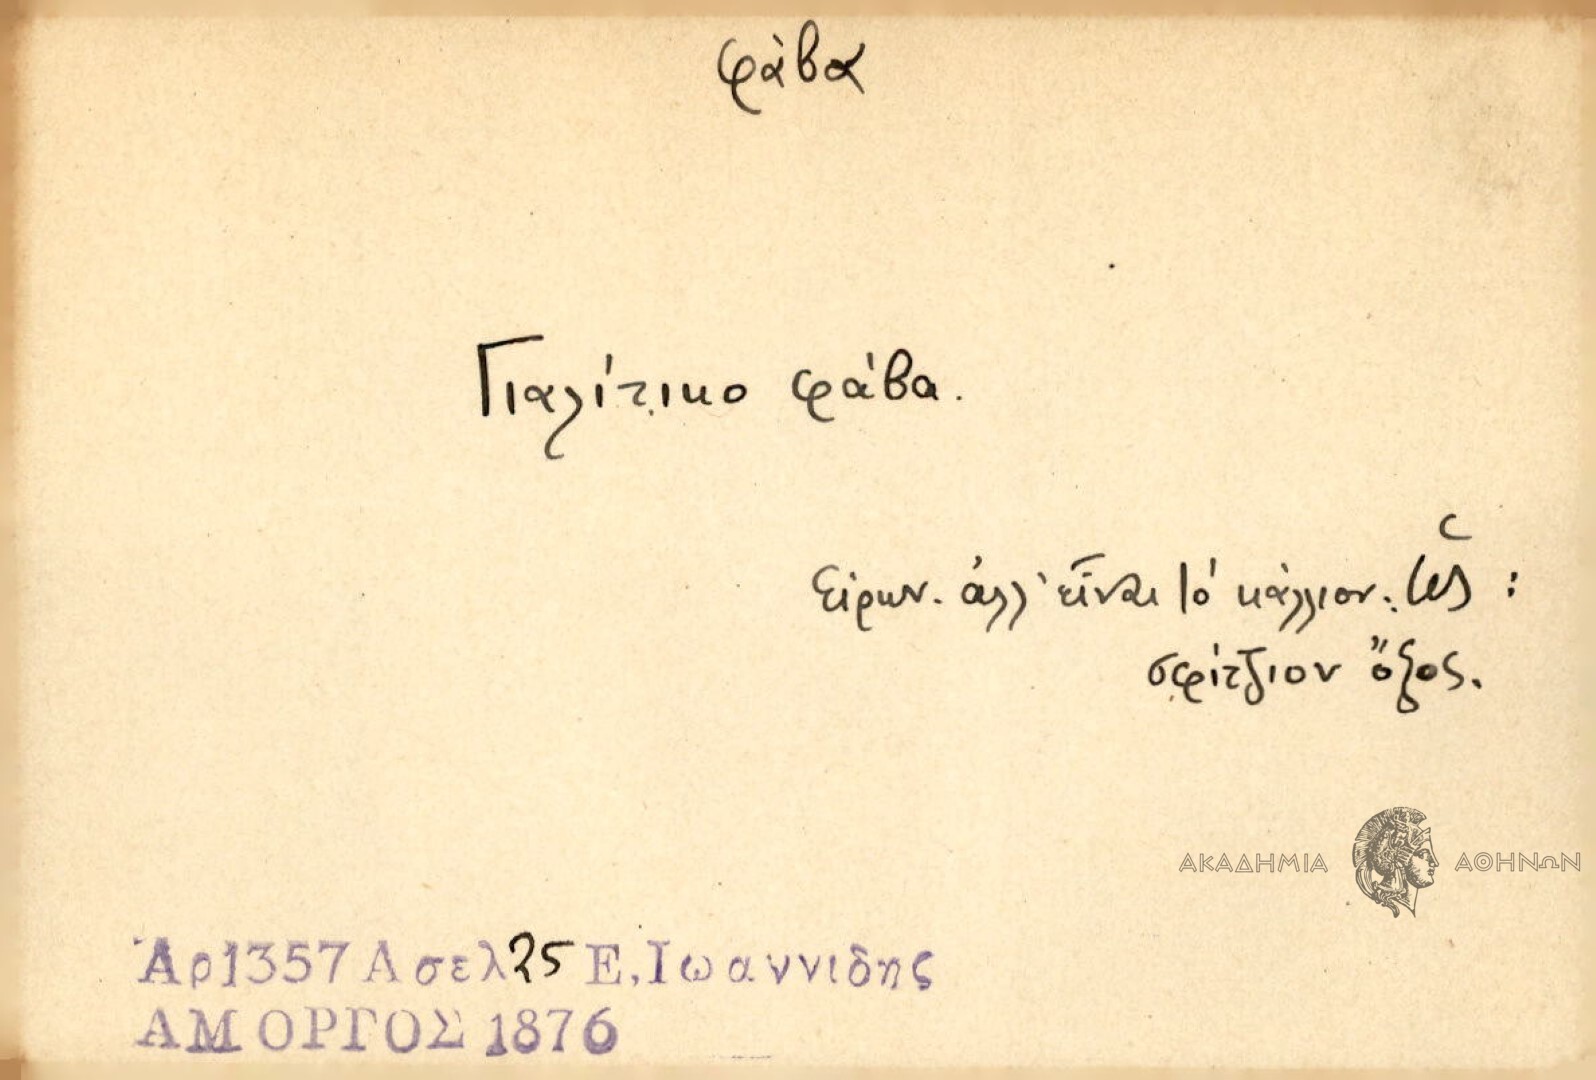 φάβα
Γιαλίτικο φάβα.
Εἰρων. ἀλλ' εἶναι τὸ κάλλιον. ὡς :
σφίτζιον ὄξος.
ΑΚΑΔΗΜΙΑ ΑΘΗΝΩΝ
Ἀρ1357 Α σελ 25 Ε. Ἰωαννιδης
ΑΜΟΡΓΟΣ 1876